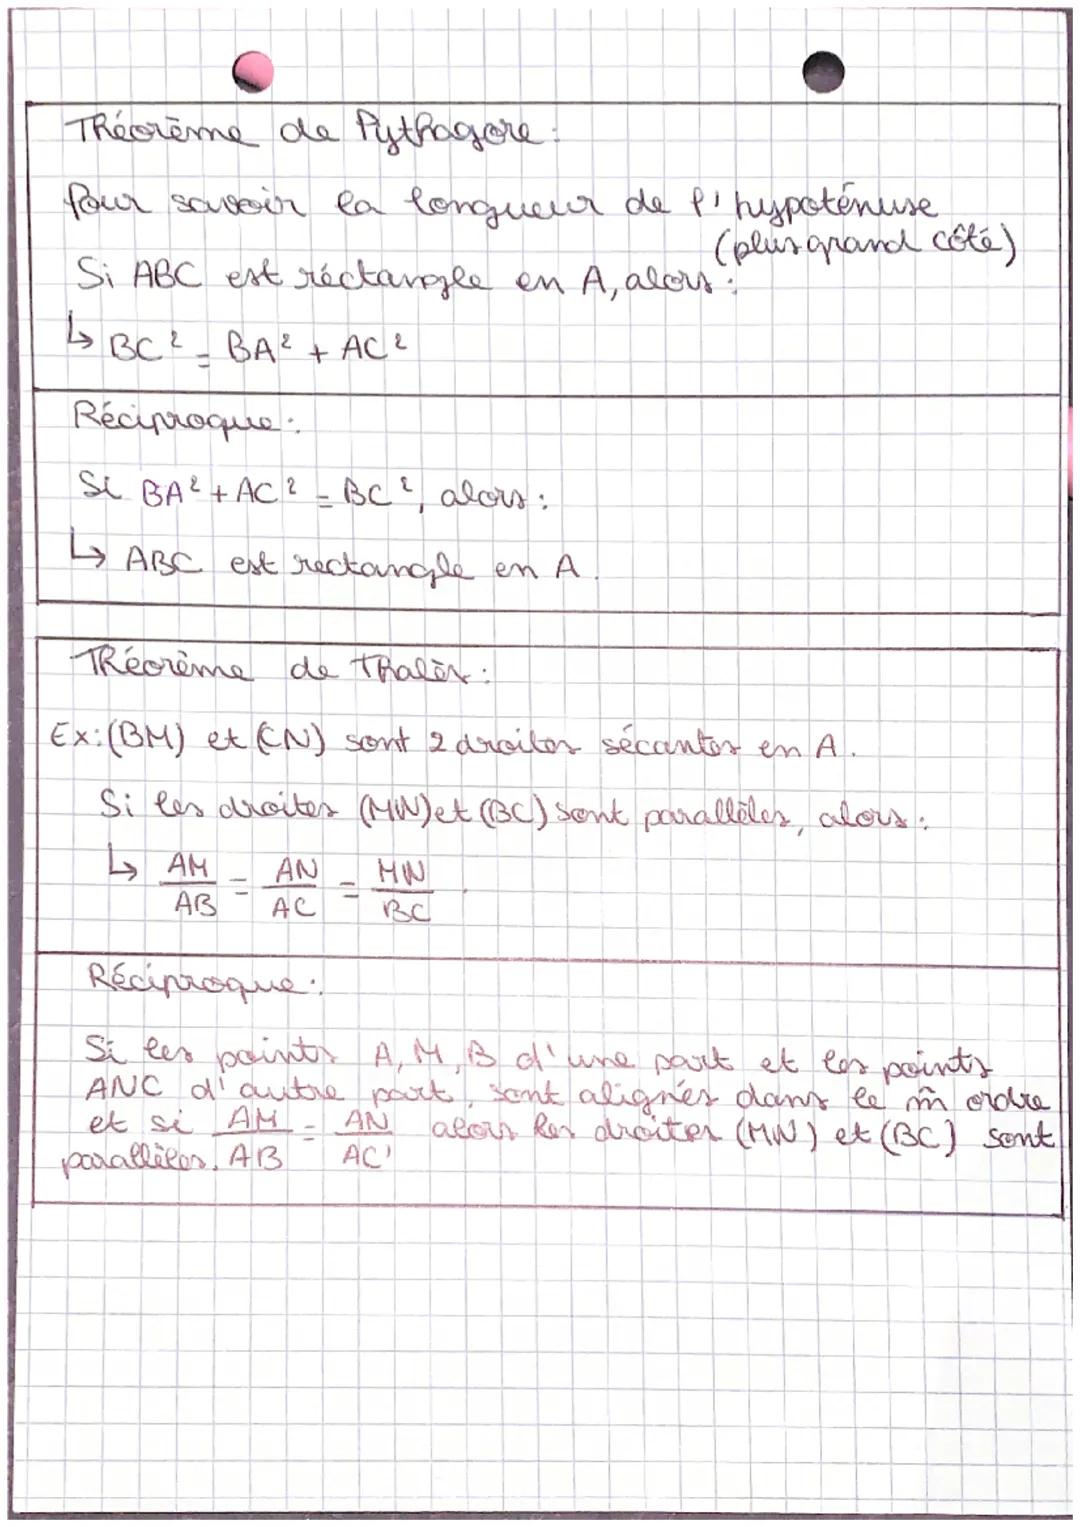 Théorème de Pythagore :
Pour savoir la longueur de l'hypoténuse
(plus grand côté)
Si ABC est réctangle en A, alors :
↳ BC² = BA² + AC²
Réciproque :
Si BA² + AC² = BC², alors :
↳ ABC est rectangle en A.
Théorème de Thalès :
Ex : (BM) et (CN) sont 2 droites sécantes en A.
Si les droites (MN) et (BC) sont parallèles, alors :
↳ AM/AB = AN/AC = MN/BC.
Réciproque :
Si les points A, M, B d'une part et les points
ANC d'autre part, sont alignés dans le m̂ ordre
et si AM/AB = AN/AC, alors les droites (MN) et (BC) sont
parallèles.